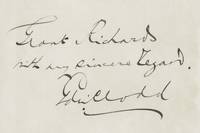 Grant Richards
with my sincere regard.
Edw. Clodd